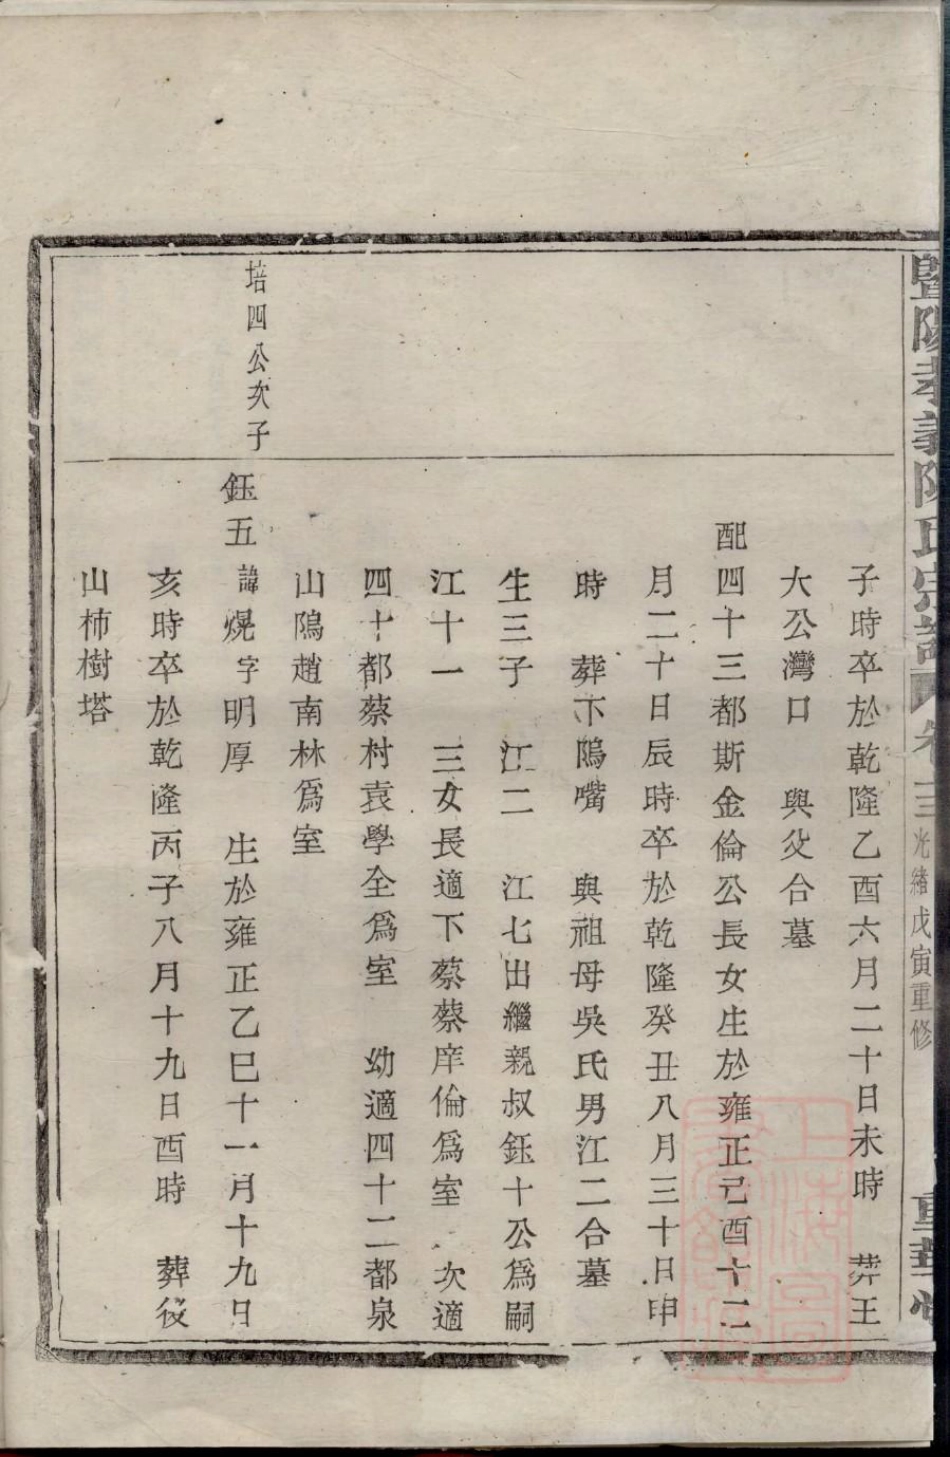 暨陽孝義陳氏宗譜 卷 光緒戊寅重修
子時卒於乾隆乙酉六月二十日未時 葬王
大公灣口 與父合墓
配四十三都斯金倫公長女生於雍正己酉十二
月二十日辰時卒於乾隆癸丑八月三十日申
時 葬下隖嘴 與祖母吳氏男江二合墓
生三子 江二 江七出繼親叔鈺十公爲嗣
江十一 三女長適下蔡蔡庠倫爲室 次適
四十都蔡村袁學全爲室 幼適四十二都泉
山隖趙南林爲室
培四公次子
鈺五 諱熀字明厚 生於雍正乙巳十一月十九日
亥時卒於乾隆丙子八月十九日酉時 葬後
山柿樹塔